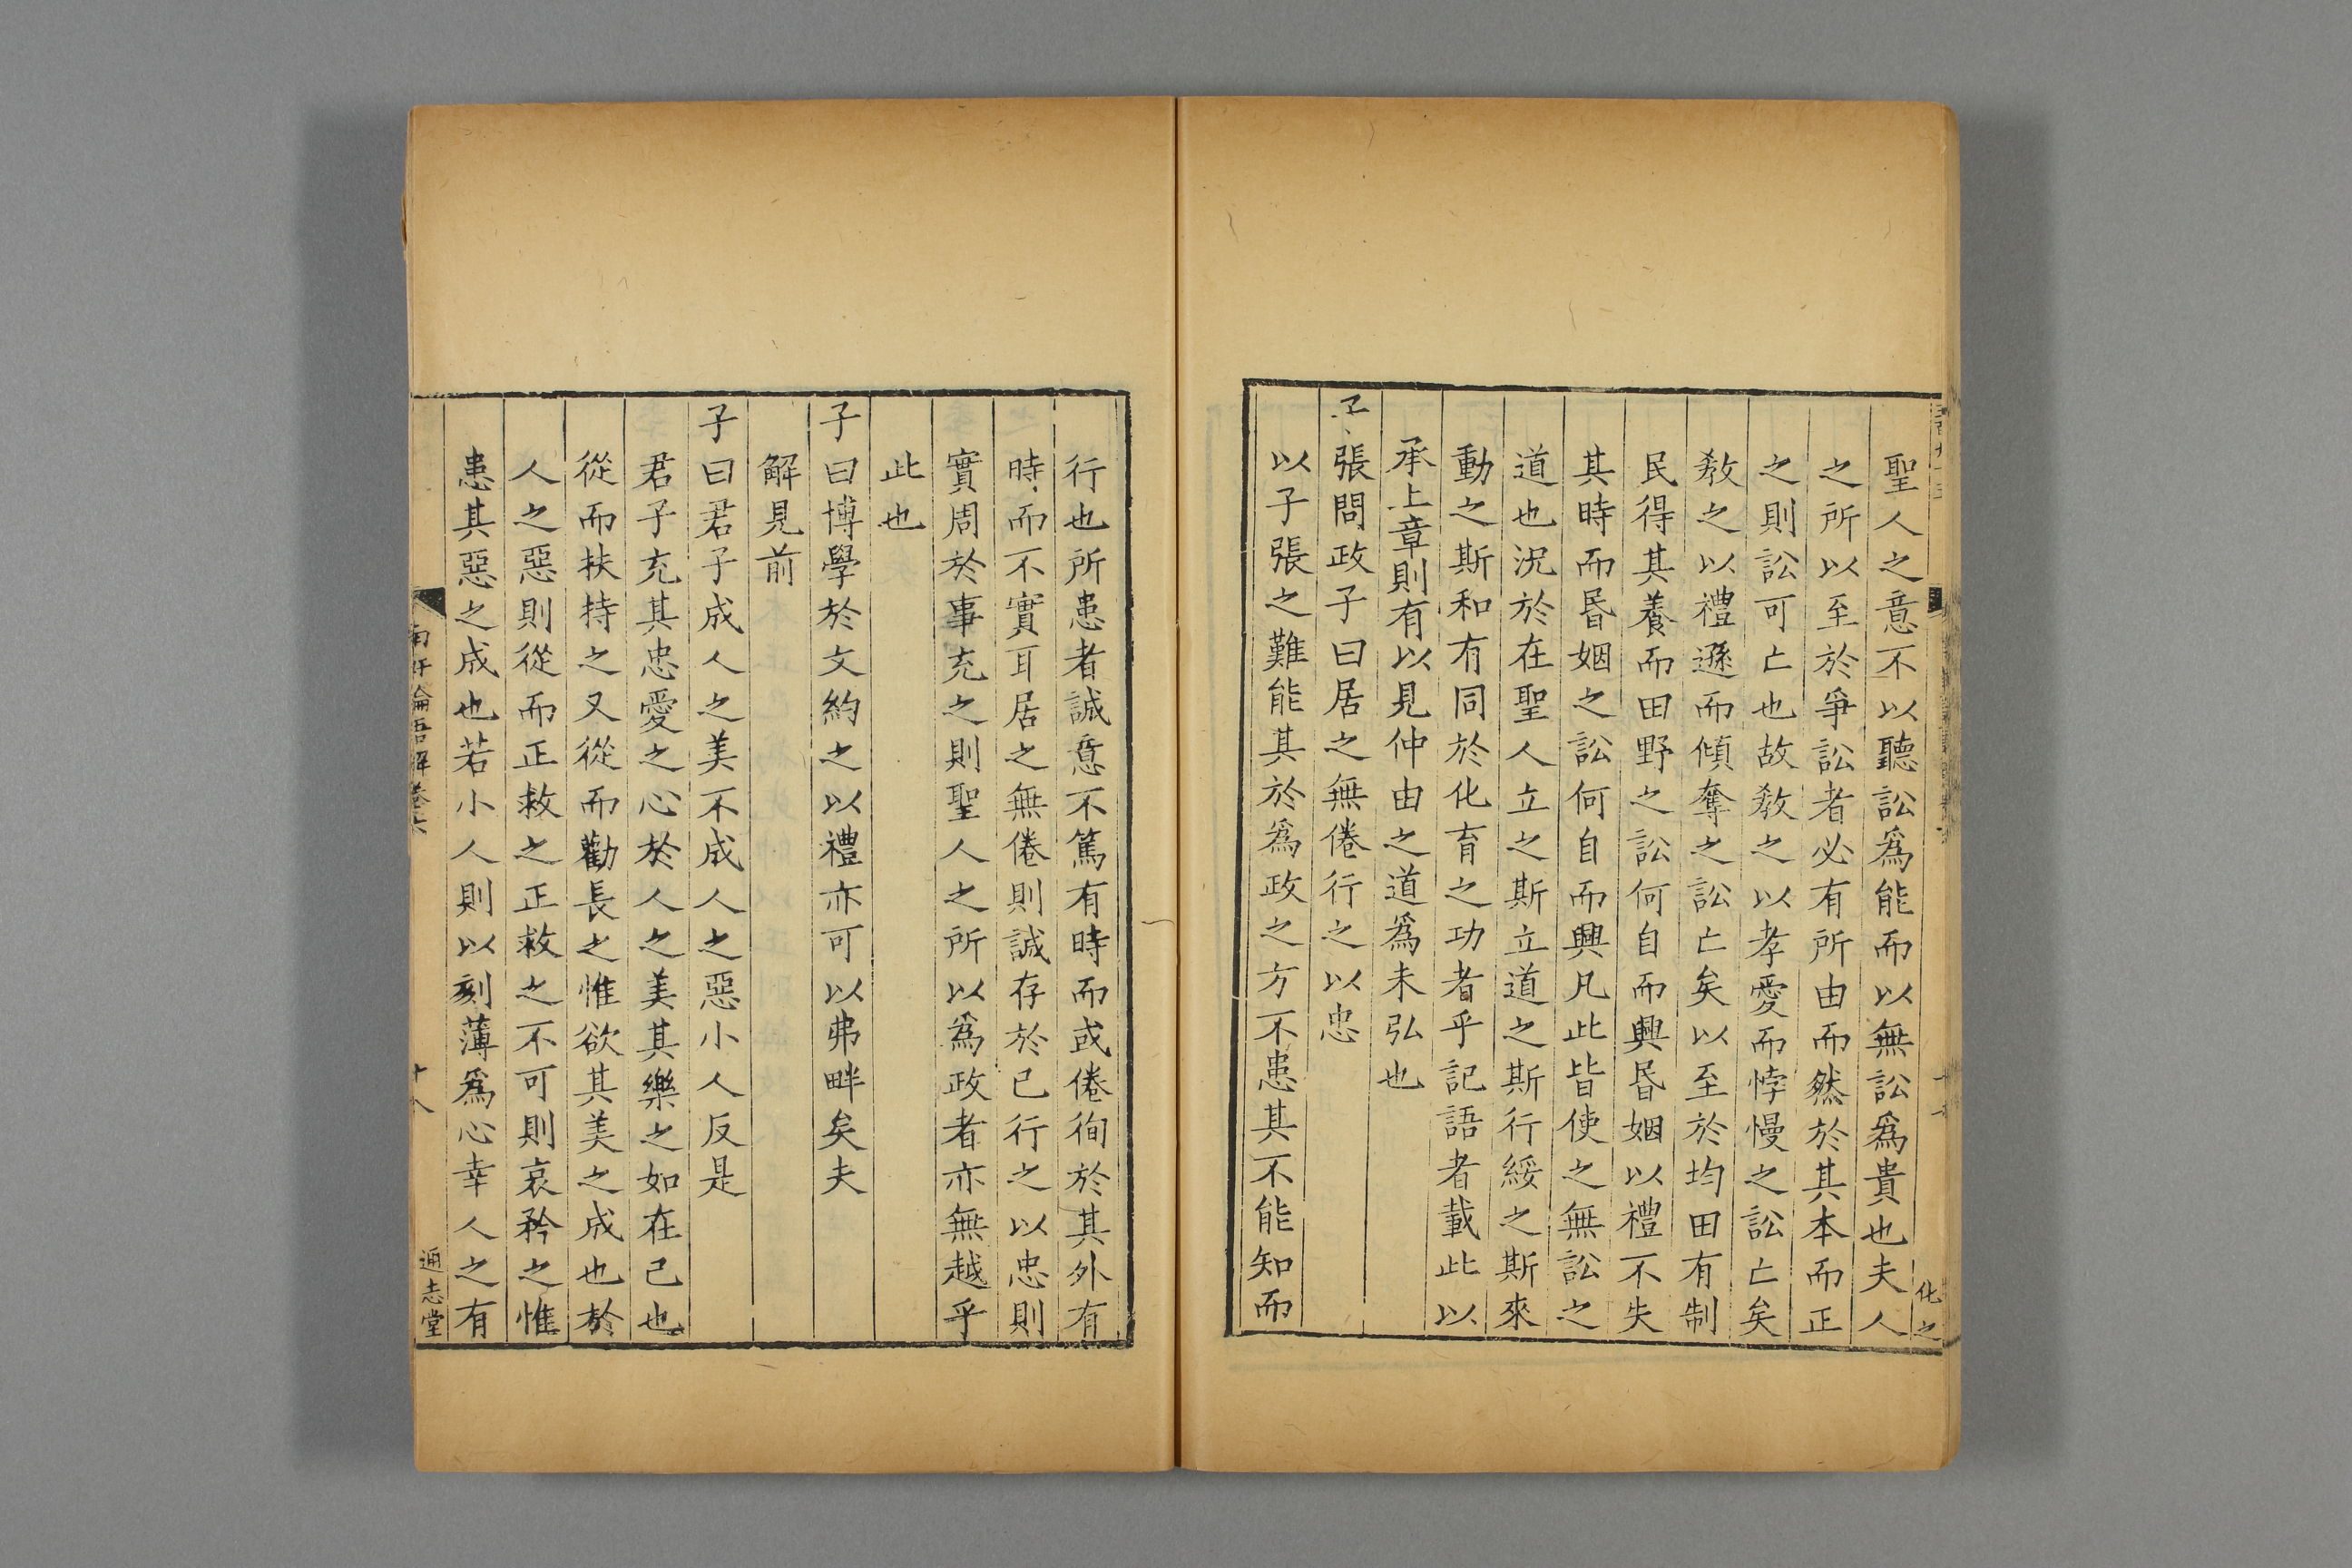 聖人之意不以聽訟爲能而以無訟爲貴也夫人
之所以至於爭訟者必有所由而然於其本而正
之則訟可亡也故敎之以孝愛而悖慢之訟亡矣
敎之以禮遜而傾奪之訟亡矣以至於均田有制
民得其養而田野之訟何自而興昬姻以禮不失
其時而昬姻之訟何自而興凡此皆使之無訟之
道也況於在聖人立之斯立道之斯行綏之斯來
動之斯和有同於化育之功者乎記語者載此以
承上章則有以見仲由之道爲未弘也
子張問政子曰居之無倦行之以忠
以子張之難能其於爲政之方不患其不能知而
化之
行也所患者誠意不篤有時而或倦徇於其外有
時而不實耳居之無倦則誠存於已行之以忠則
實周於事充之則聖人之所以爲政者亦無越乎
此也
子曰博學於文約之以禮亦可以弗畔矣夫
解見前
子曰君子成人之美不成人之惡小人反是
君子充其忠愛之心於人之美其樂之如在己也
從而扶持之又從而勸長之惟欲其美之成也於
人之惡則從而正救之正救之不可則哀矜之惟
患其惡之成也若小人則以刻薄爲心幸人之有
南軒論語解卷六
十八
通志堂